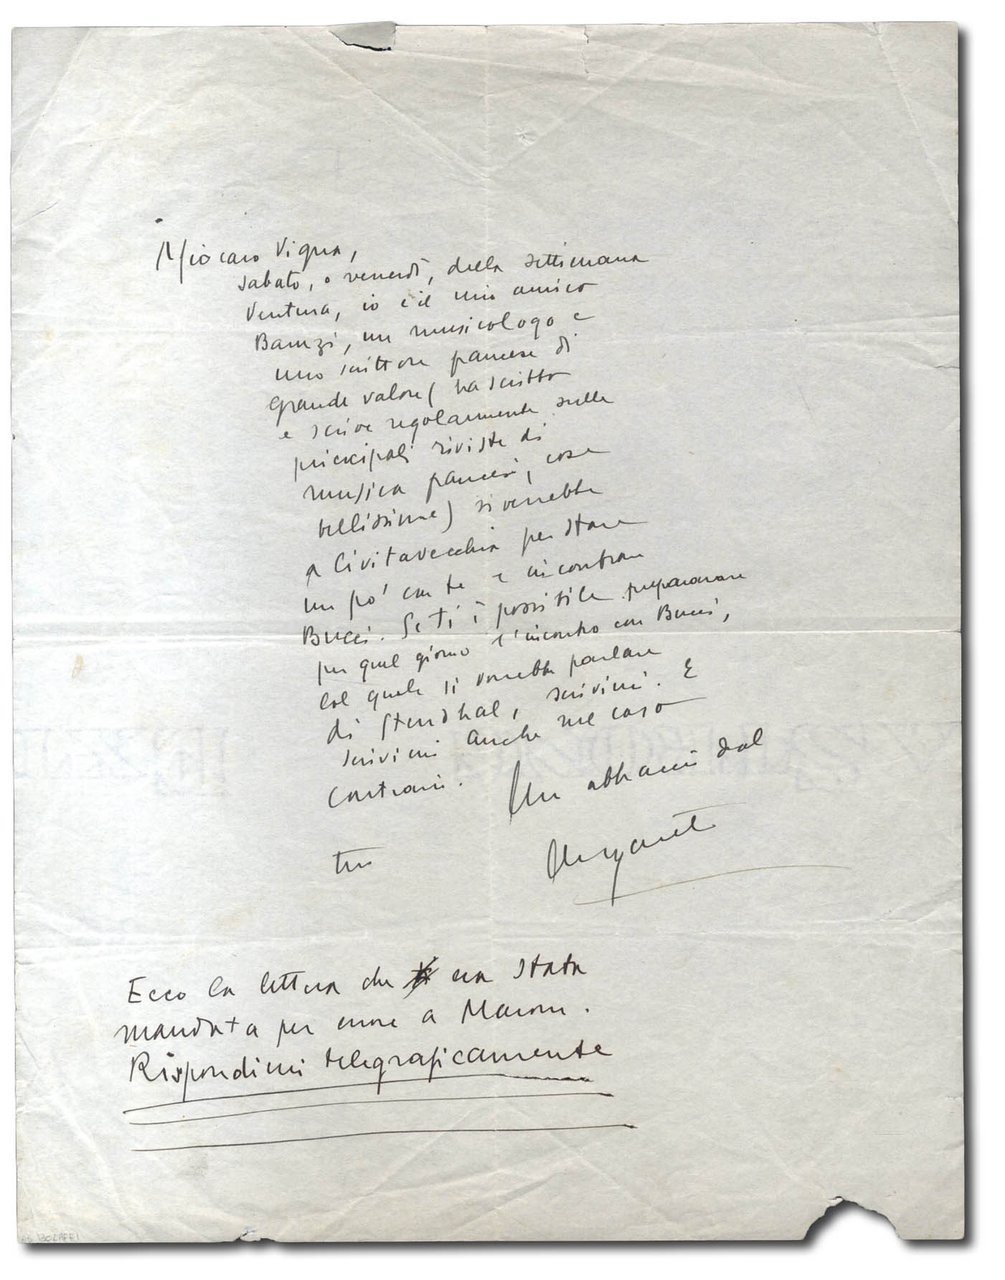 Mio caro Vigna,
sabato, o venerdì, della settimana
ventura, io e il mio amico
Baruzi, un musicologo e
uno scrittore francese di
grande valore (ha scritto
e scrive regolarmente sulle
principali riviste di
musica francesi, cose
bellissime) si verrebbe
a Civitavecchia per stare
un po' con te e incontrare
Bucci. Se ti è possibile preparare
per quel giorno l'incontro con Bucci,
col quale si vorrebbe parlare
di Stendhal, scrivimi. E
scrivimi anche nel caso
contrario.
Un abbraccio dal
tuo
Ungaretti
Ecco la lettera che era stata
mandata per errore a Maroni.
Rispondimi telegraficamente